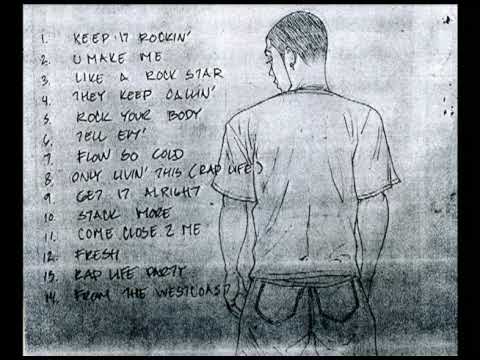 1. KEEP IT ROCKIN'
2. U MAKE ME
3. LIKE A ROCK STAR
4. THEY KEEP CALLIN'
5. ROCK YOUR BODY
6. TELL EM'
7. FLOW SO COLD
8. ONLY LIVIN' THIS (RAP LIFE)
9. GET IT ALRIGHT
10. STACK MORE
11. COME CLOSE 2 ME
12. FRESH
13. RAP LIFE PARTY
14. FROM THE WESTCOAST